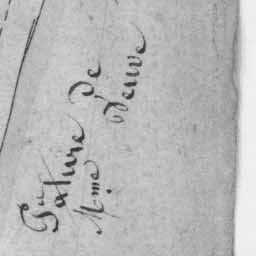 Pâture de
Mme Veuve